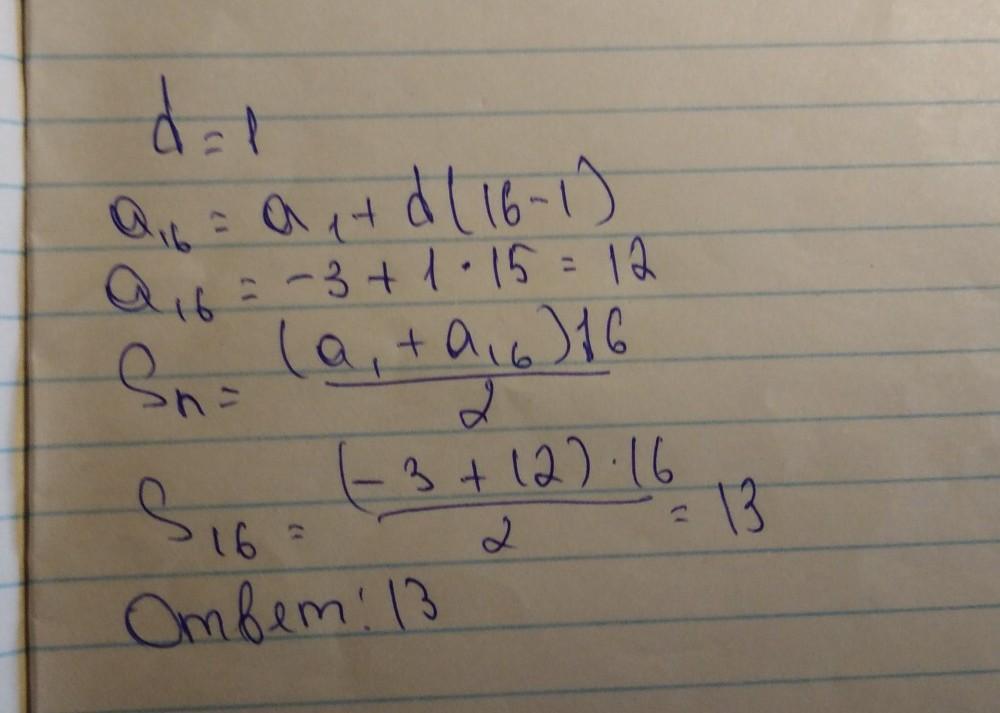 d = 1
a₁₆ = a₁ + d(16-1)
a₁₆ = -3 + 1 · 15 = 12
Sn = (a₁ + a₁₆)16 / 2
S₁₆ = (-3 + 12) · 16 / 2 = 13
Ответ: 13